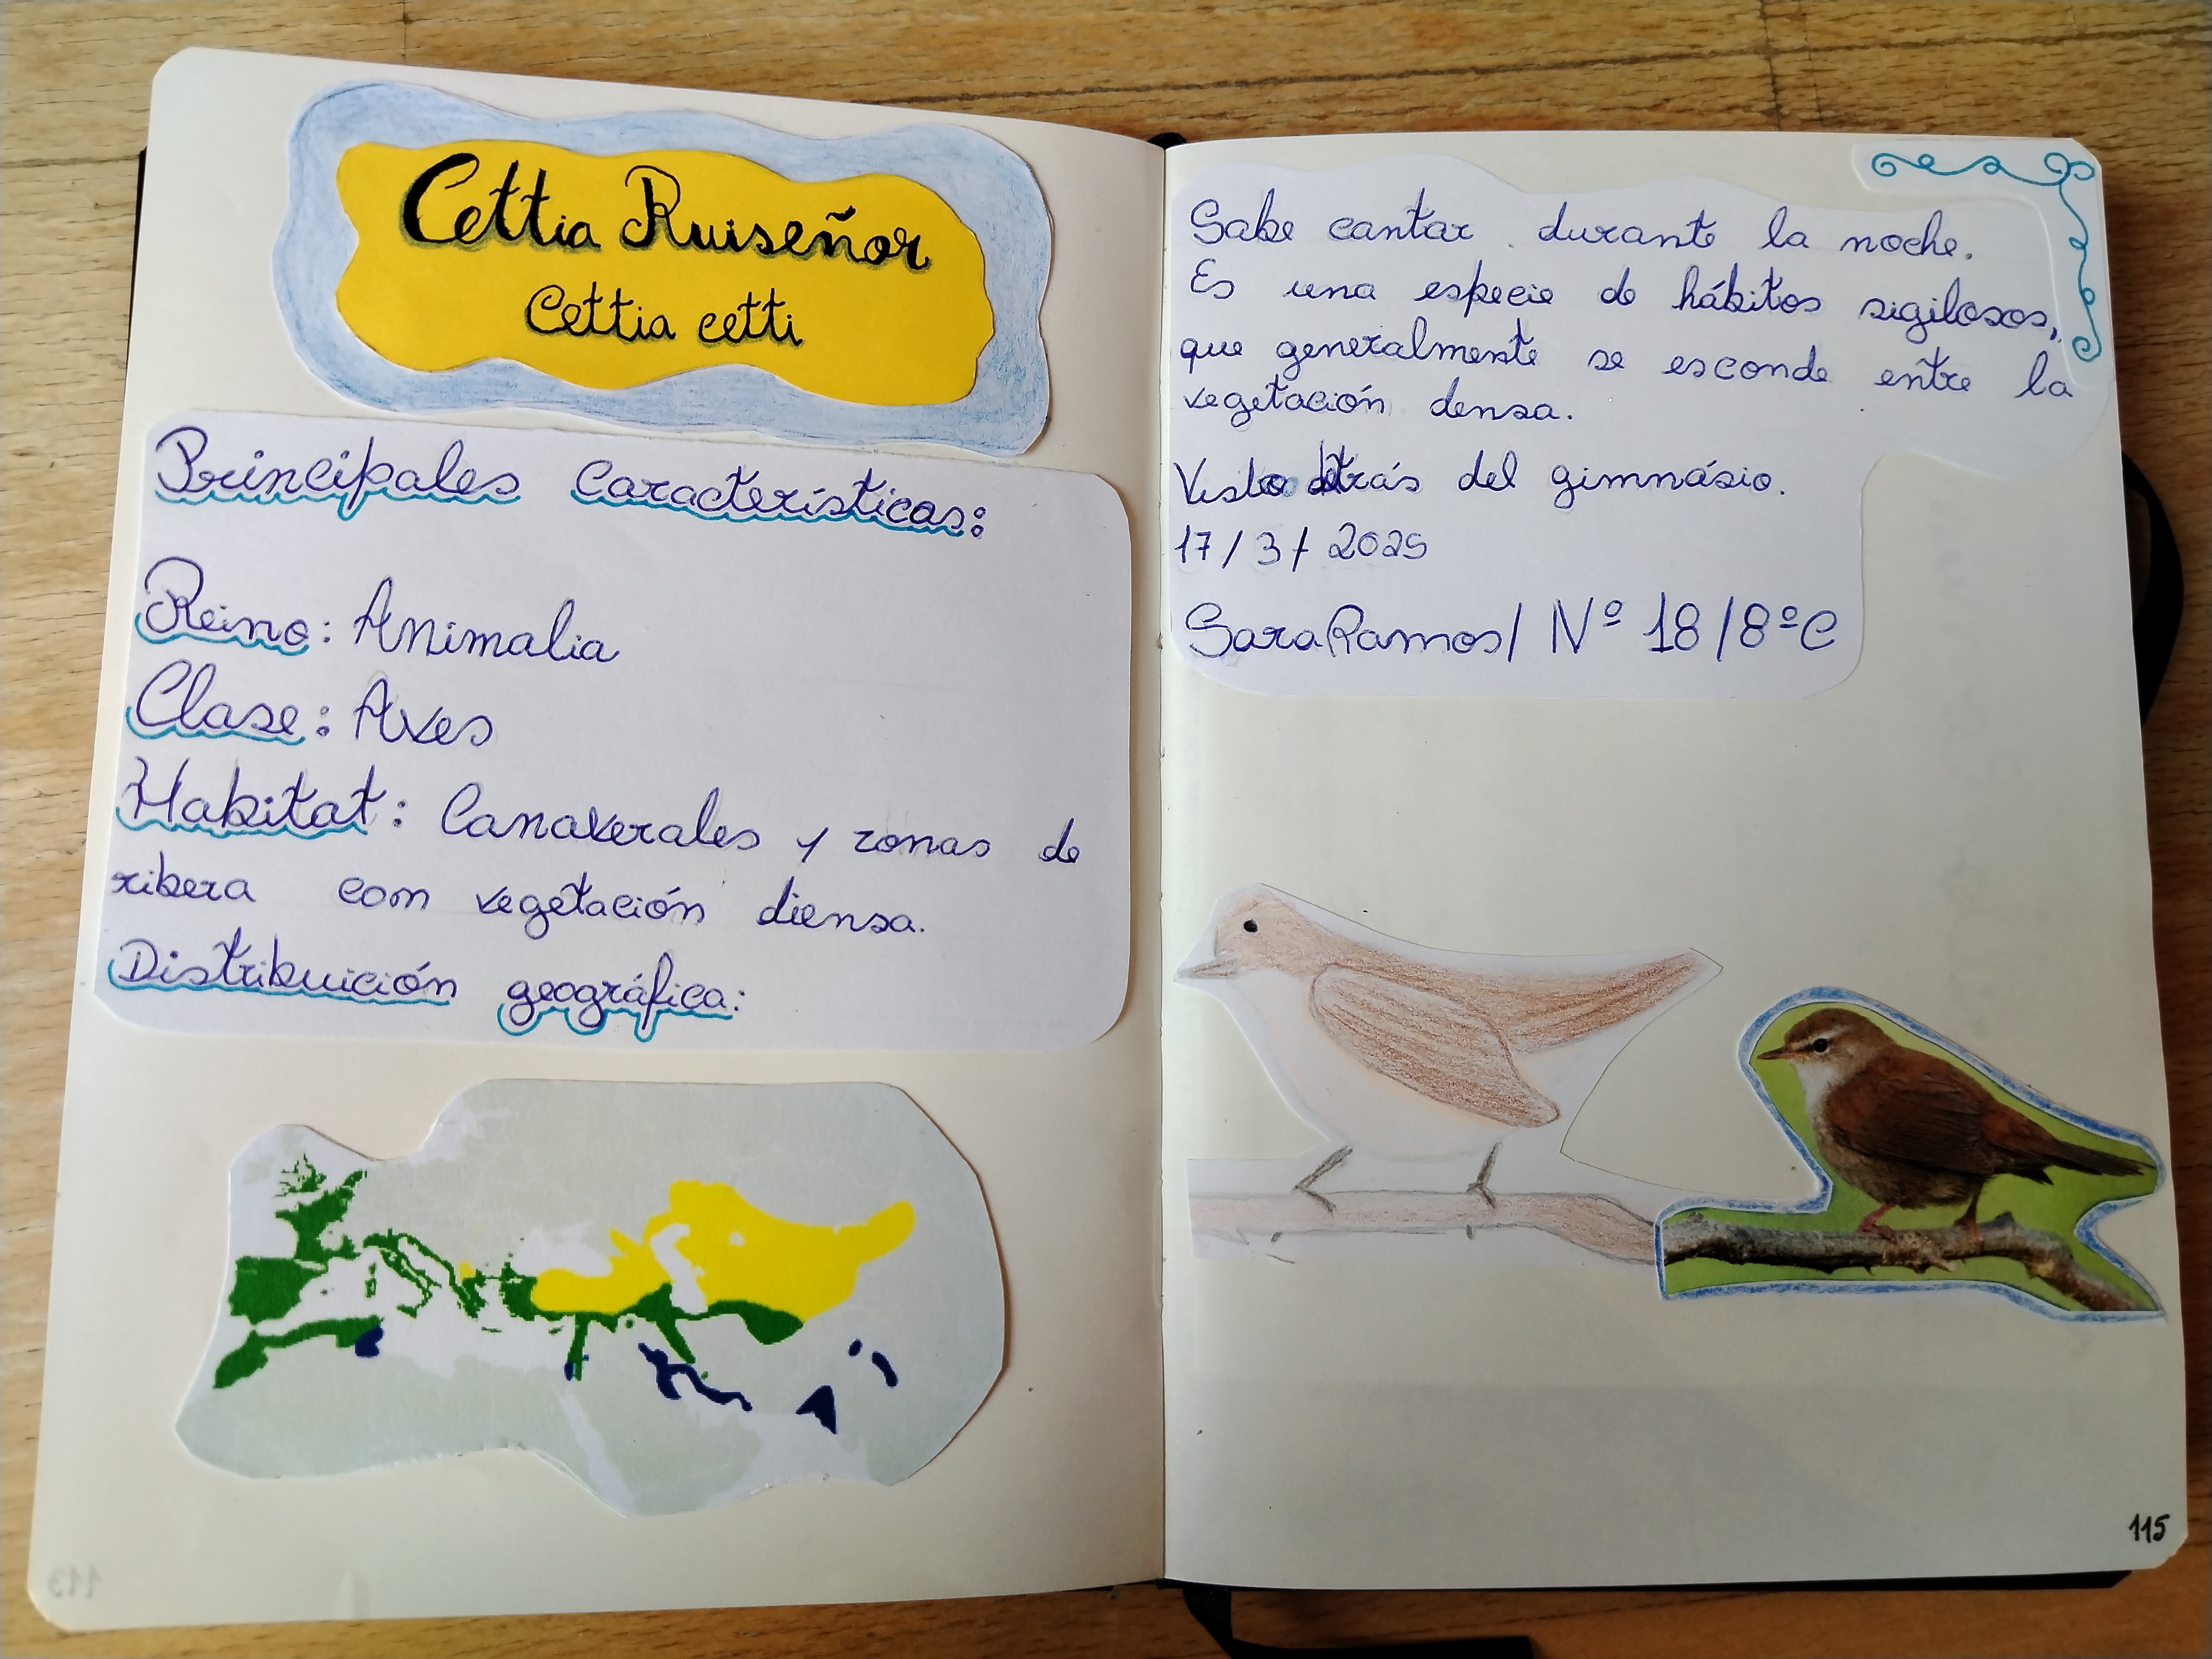 Cettia Ruiseñor
Cettia cetti
Principales Características:
Reino: Animalia
Clase: Aves
Habitat: Canaverales y zonas de
ribera com vegetación diensa.
Distribuición geográfica:
Sabe cantar durante la noche.
Es una especie de hábitos sigilosos,
que generalmente se esconde entre la
vegetación densa.
Visto detrás del gimnásio.
17/3/2025
Sara Ramos/ Nº 18/8ºC
115
113